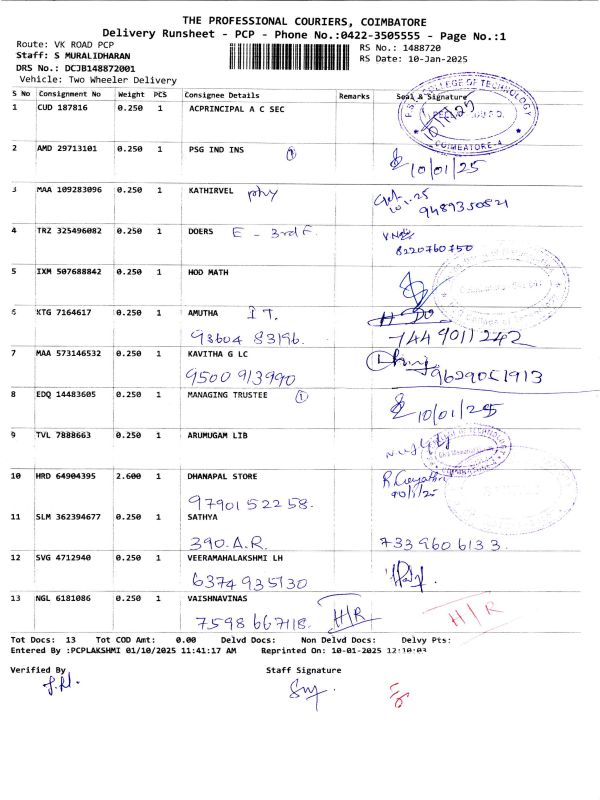 THE PROFESSIONAL COURIERS, COIMBATORE
Delivery Runsheet - PCP - Phone No.:0422-3505555 - Page No.:1
Route: VK ROAD PCP
Staff: S MURALIDHARAN
DRS No.: DCJB148872001
Vehicle: Two Wheeler Delivery
RS No.: 1488720
RS Date: 10-Jan-2025
S No Consignment No Weight PCS Consignee Details Remarks Seal & Signature
1 CUD 187816 0.250 1 ACPRINCIPAL A C SEC
COLLEGE OF TECHNOLOGY
COIMBATORE-4
2 AMD 29713101 0.250 1 PSG IND INS 1
10/01/25
3 MAA 109283096 0.250 1 KATHIRVEL phy
9489350821
4 TRZ 325496082 0.250 1 DOERS E - 3rd F.
8220760750
5 IXM 507688842 0.250 1 HOD MATH
6 KTG 7164617 0.250 1 AMUTHA I T.
93604 83196. 7449011242
7 MAA 573146532 0.250 1 KAVITHA G LC
9500 913990 9629051913
8 EDQ 14483605 0.250 1 MANAGING TRUSTEE 1
10/01/25
9 TVL 7888663 0.250 1 ARUMUGAM LIB
10 HRD 64904395 2.600 1 DHANAPAL STORE
9790152258.
11 SLM 362394677 0.250 1 SATHYA
390. A.R. 733 960 6133.
12 SVG 4712940 0.250 1 VEERAMAHALAKSHMI LH
6374 935130
13 NGL 6181086 0.250 1 VAISHNAVINAS
7598 667118. H/R H/R
Tot Docs: 13 Tot COD Amt: 0.00 Delvd Docs: Non Delvd Docs: Delvy Pts:
Entered By :PCPLAKSHMI 01/10/2025 11:41:17 AM Reprinted On: 10-01-2025 12:10:03
Verified By Staff Signature